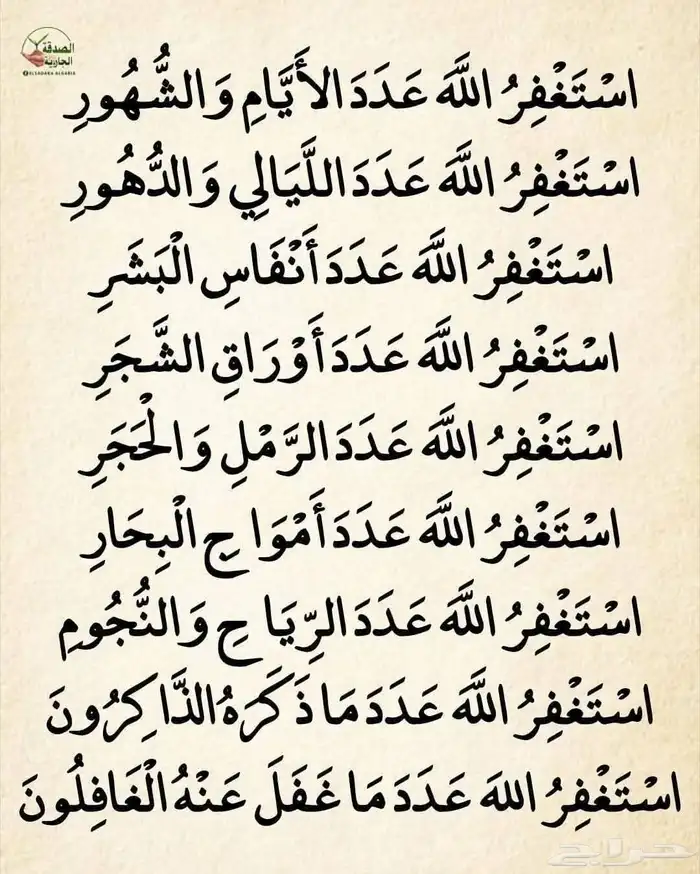 الصدقة
الجارية
ELSADAKA ALGARIA
اسْتَغْفِرُ اللَّهَ عَدَدَ الأَيَّامِ وَالشُّهُورِ
اسْتَغْفِرُ اللَّهَ عَدَدَ اللَّيَالِي وَالدُّهُورِ
اسْتَغْفِرُ اللَّهَ عَدَدَ أَنْفَاسِ الْبَشَرِ
اسْتَغْفِرُ اللَّهَ عَدَدَ أَوْرَاقِ الشَّجَرِ
اسْتَغْفِرُ اللَّهَ عَدَدَ الرَّمْلِ وَالْحَجَرِ
اسْتَغْفِرُ اللَّهَ عَدَدَ أَمْوَاجِ الْبِحَارِ
اسْتَغْفِرُ اللَّهَ عَدَدَ الرِّيَاحِ وَالنُّجُومِ
اسْتَغْفِرُ اللَّهَ عَدَدَ مَا ذَكَرَهُ الذَّاكِرُونَ
اسْتَغْفِرُ اللهَ عَدَدَ مَا غَفَلَ عَنْهُ الْغَافِلُونَ
حراج